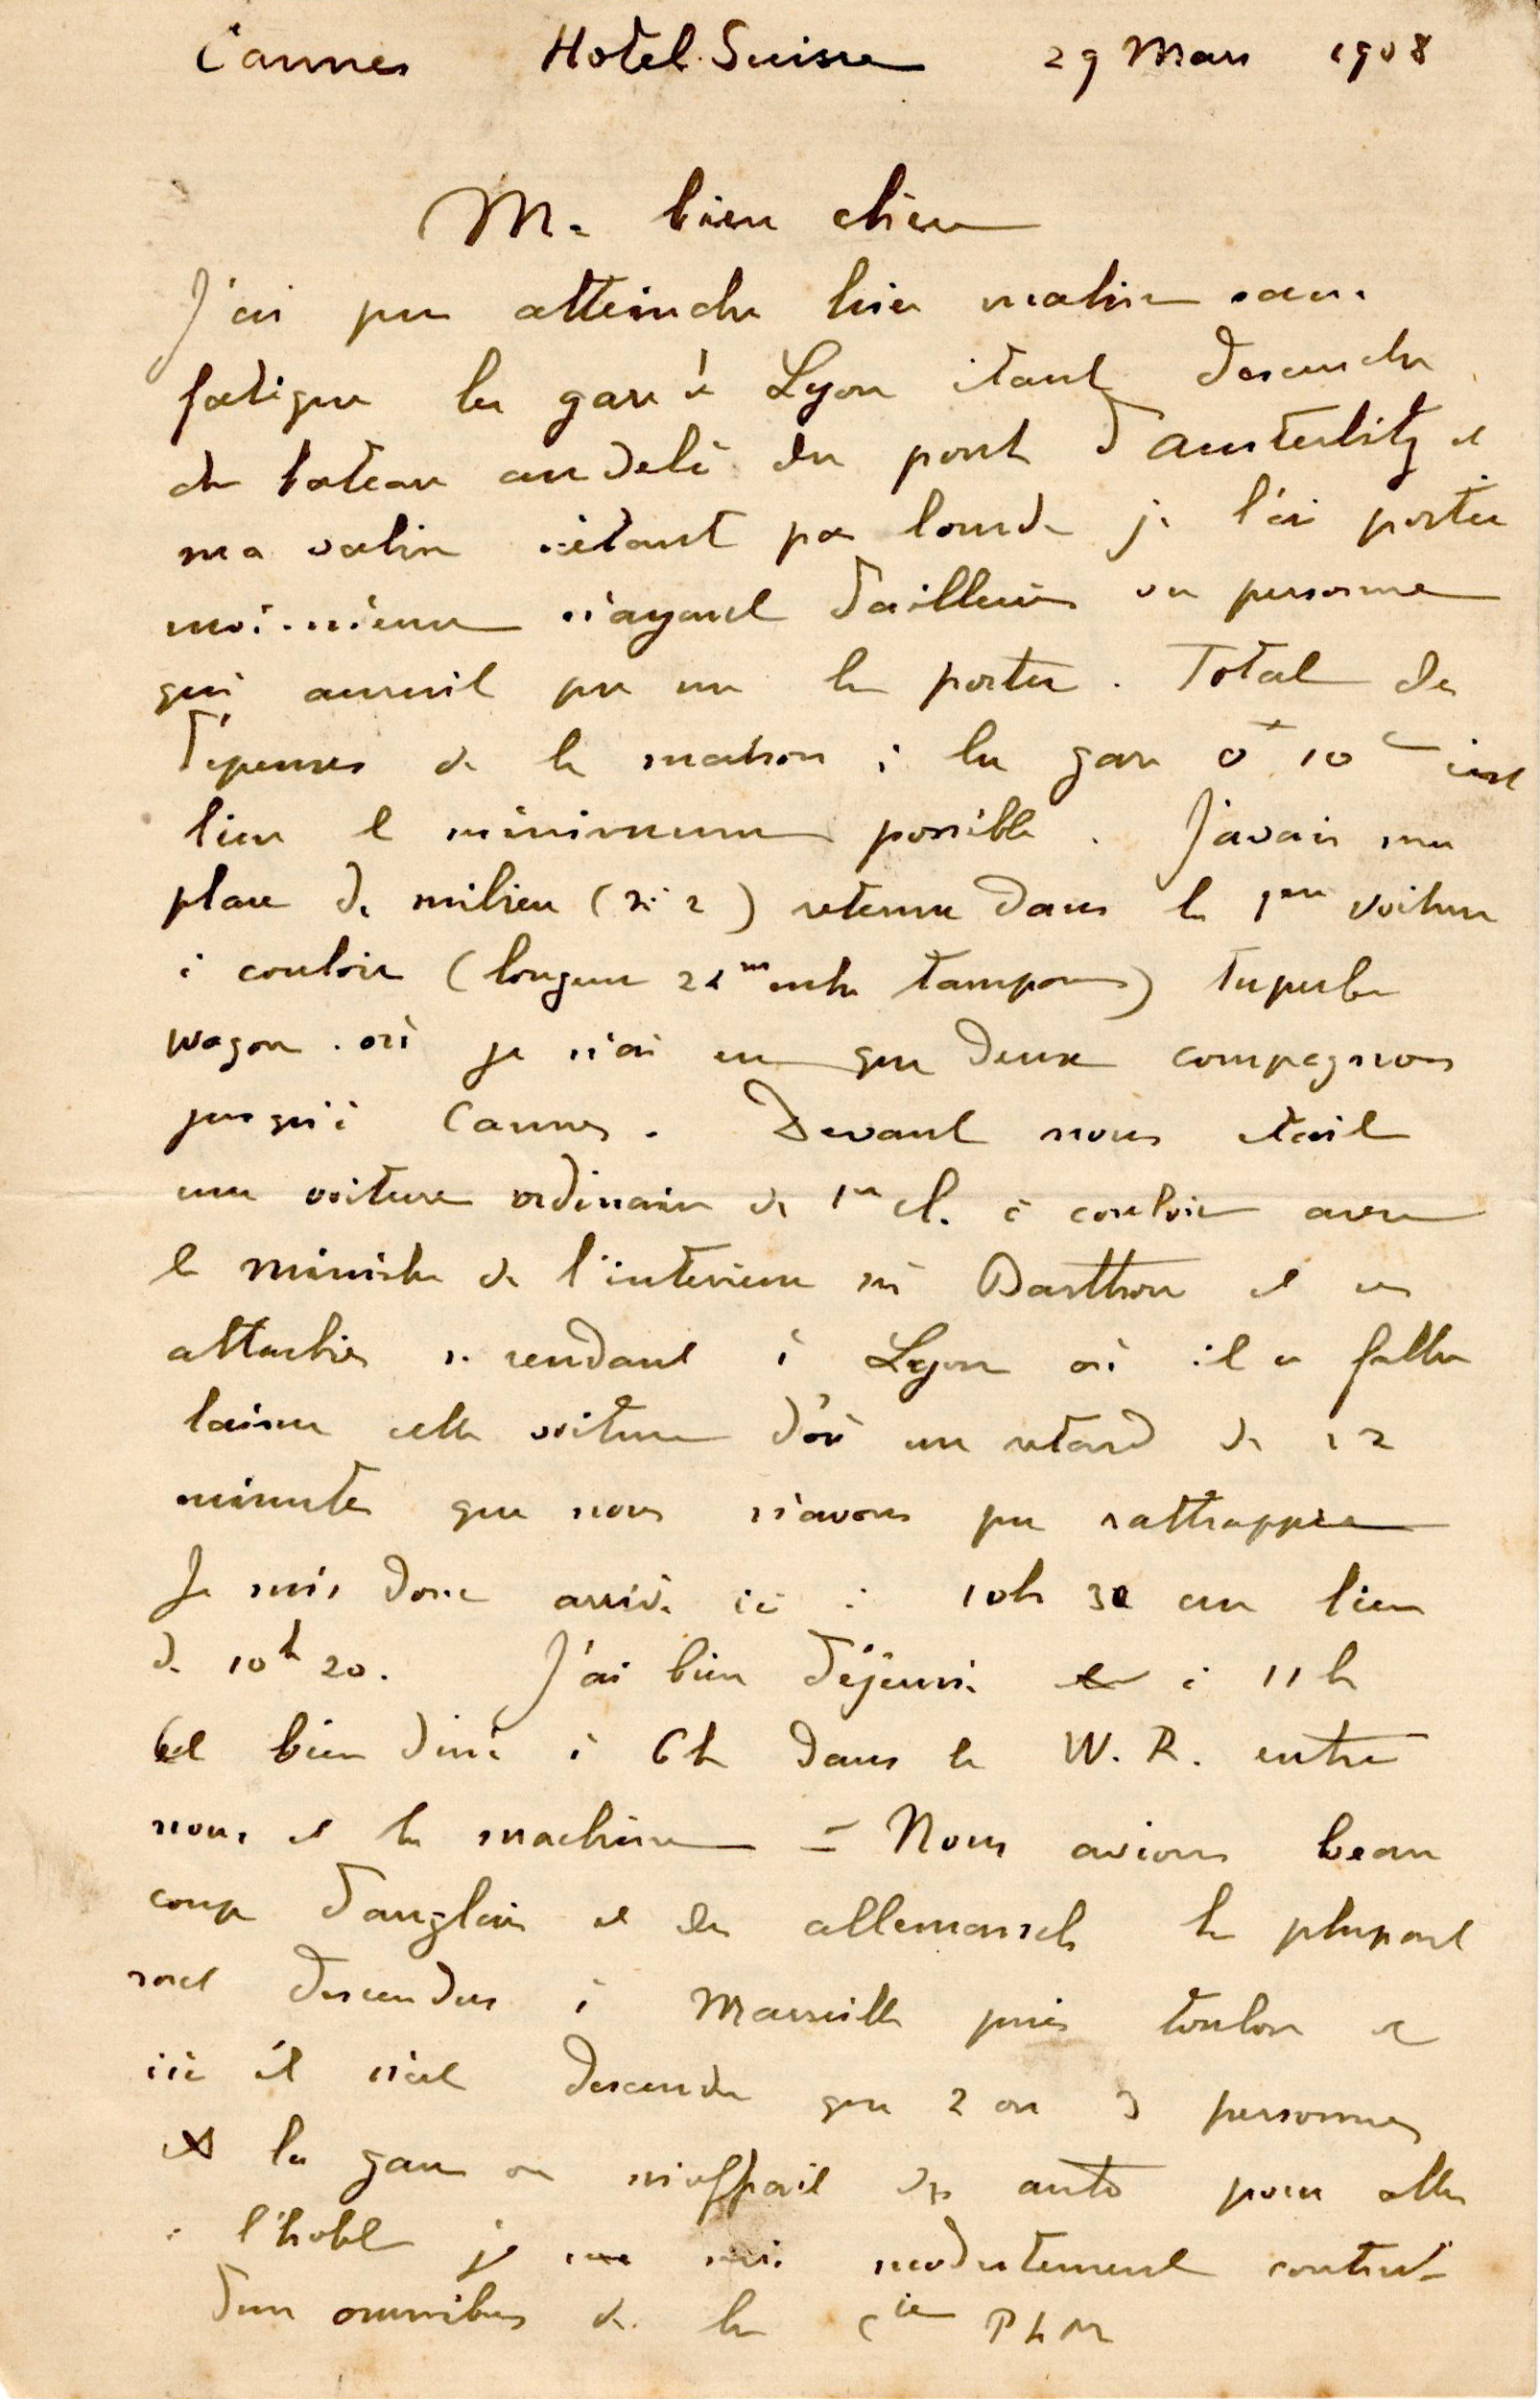 Cannes Hotel Suisse 29 Mars 1908
Ma bien chère
J'ai pu atteindre hier matin sans
fatigue la gare de Lyon étant descendu
du bateau au delà du pont d'Austerlitz et
ma valise n'étant pas lourde je l'ai portée
moi-même n'ayant d'ailleurs vu personne
qui aurait pu me la porter. Total des
dépenses de la maison à la gare 0f 10c c'est
bien le minimum possible. J'avais ma
place de milieu (n° 2) retenue dans la 1ère voiture
à couloir (longueur 22m entre tampons) superbe
wagon où je n'ai eu que deux compagnons
jusqu'à Cannes. Devant nous était
une voiture ordinaire de 1re cl. à couloir avec
le ministre de l'intérieur Mr Barthou et ses
attachés se rendant à Lyon où il a fallu
laisser cette voiture d'où un retard de 12
minutes que nous n'avons pu rattrapper
Je suis donc arrivé ici à 10h 32 au lieu
de 10h 20. J'ai bien déjeuné à 11h
et bien diné à 6h dans le W. R. entre
nous et la machine = Nous avions beau
coup d'anglais et des allemands la plupart
sont descendus à Marseille puis Toulon et
ici il n'est descendu que 2 ou 3 personnes
A la gare on m'offrait des auto pour aller
à l'hotel je me suis modestement contenté
d'un omnibus de la Cie PLM